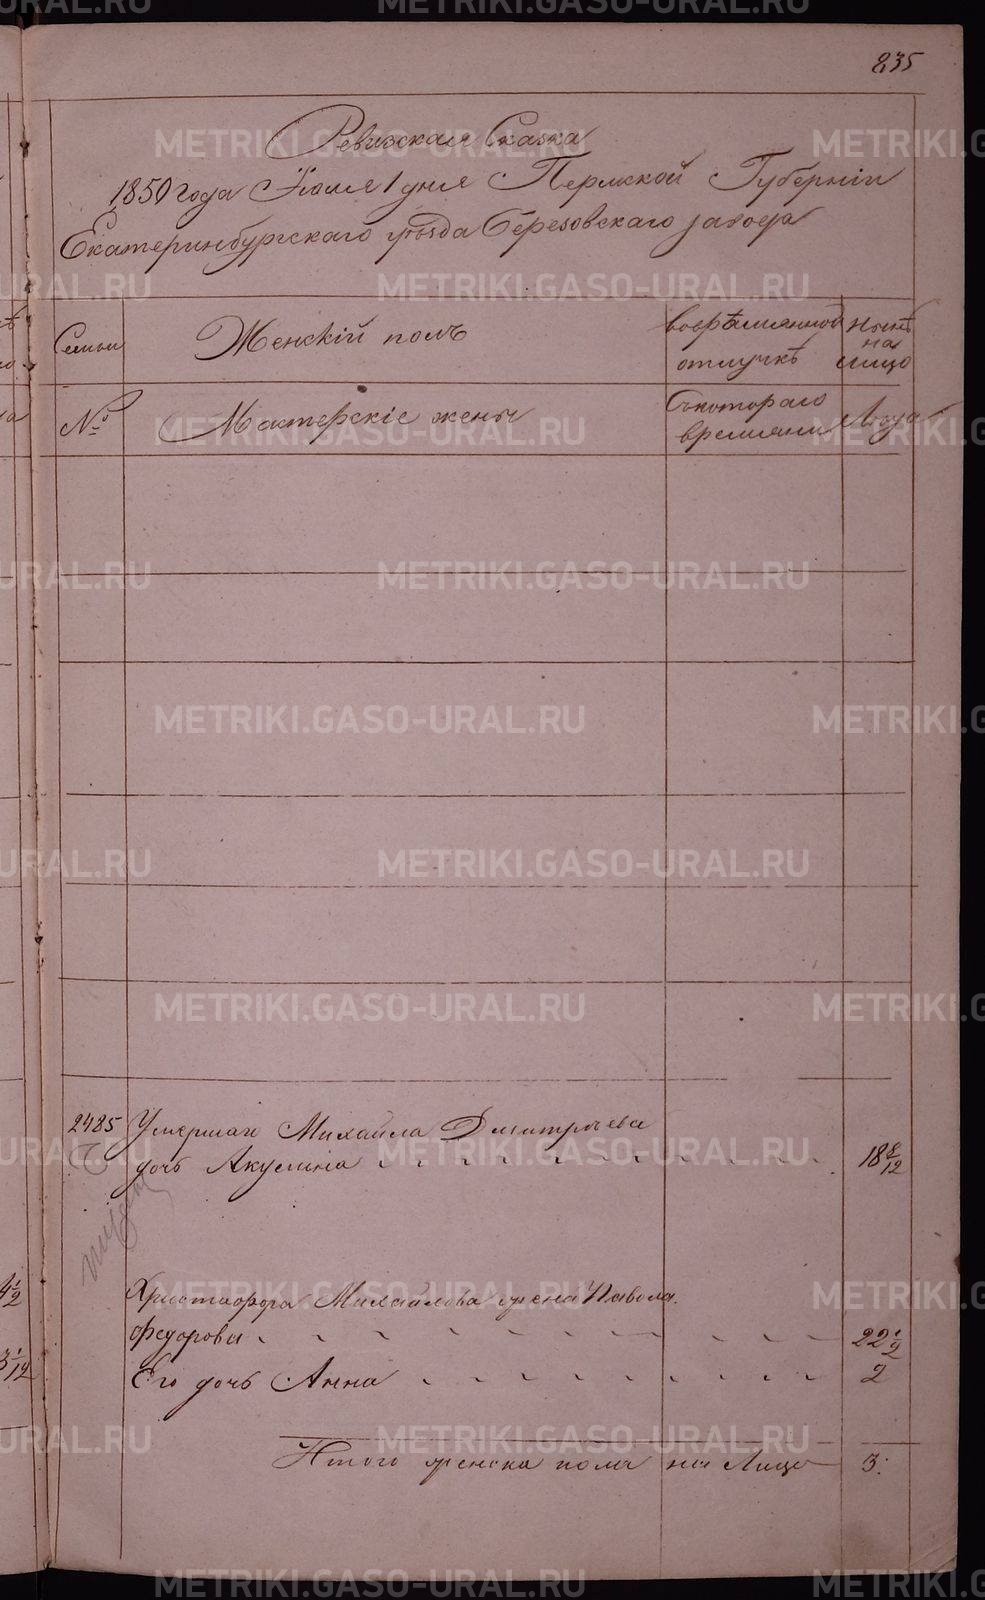 835
Ревизская Сказка
1850 года Июля 1 дня Пермской Губерніи
Екатеринбургскаго уѣзда Березовскаго завода
Семьи
Женскій полъ
вовремянной
отлучкѣ
нынѣ
на
лицо
№
Мастерскіе жены
Съкотораго
времяни
Лѣта
2485
Умершаго Михайла Дмитрiева
дочь Акулина
18 8/12
Христофора Михайлова жена Павола
Федорова
22 1/2
Его дочь Анна
2
Итого женска пола на Лицо
3.
METRIKI.GASO-URAL.RU